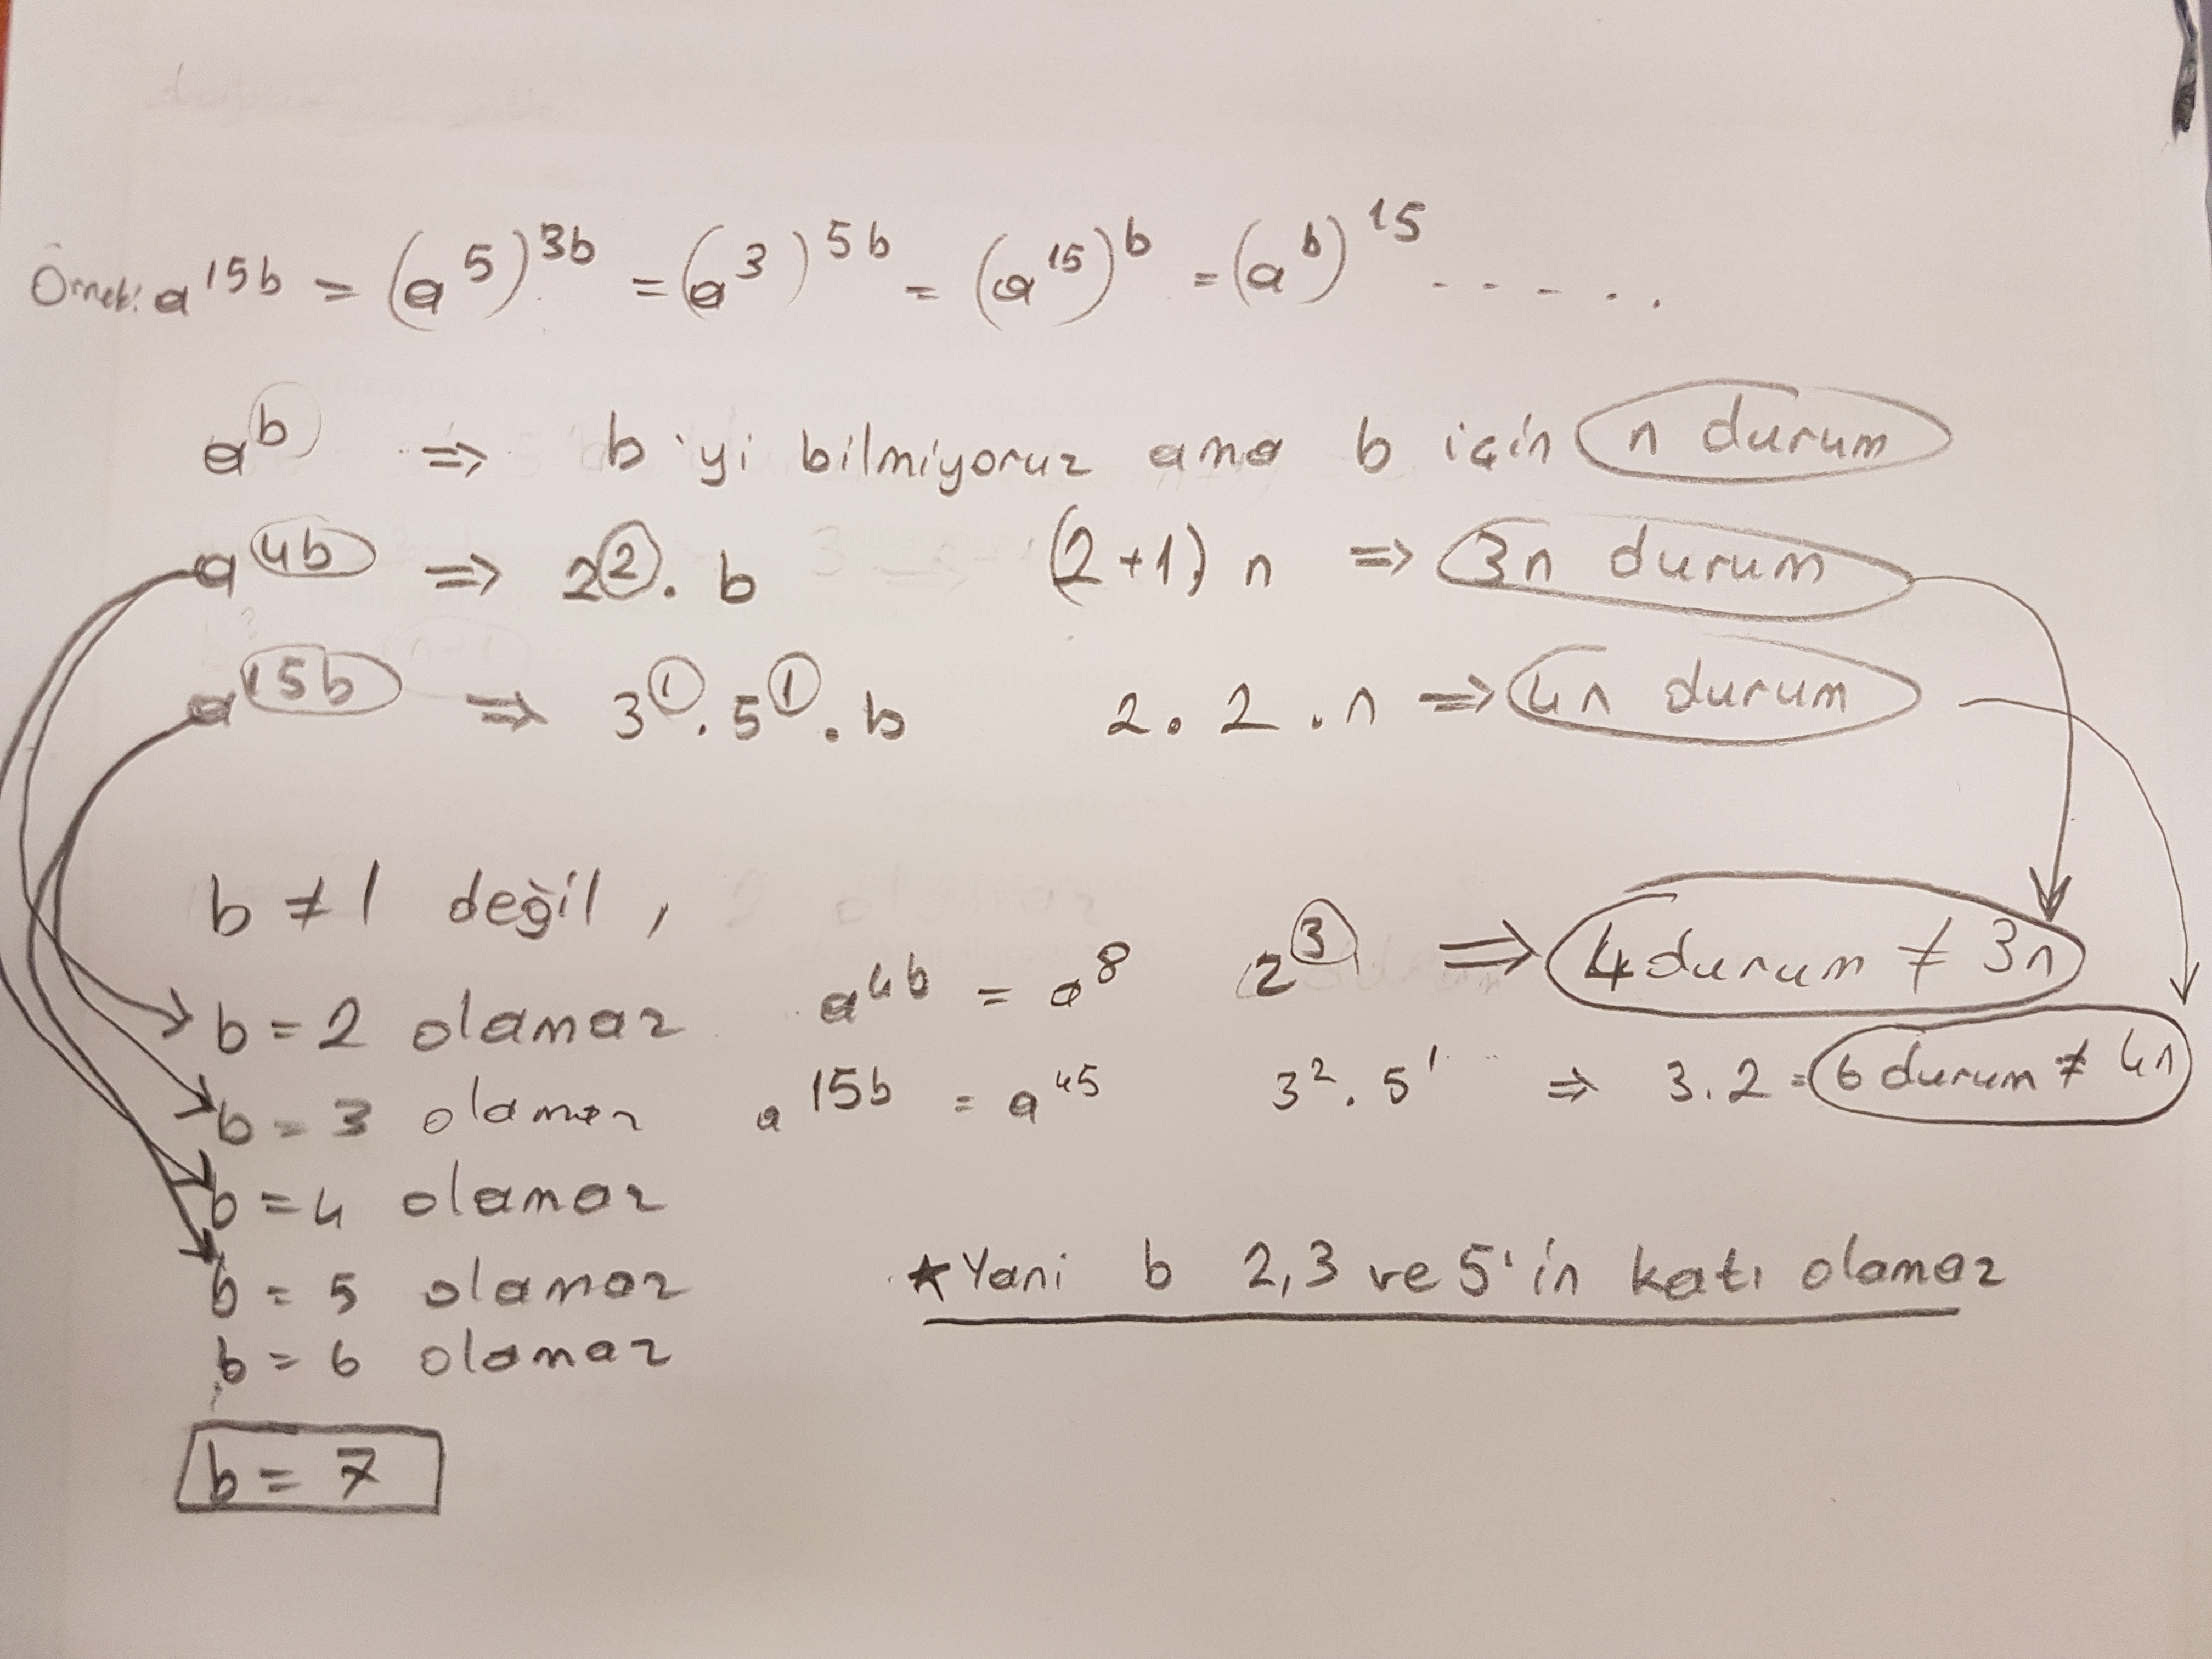 Örnek: a^15b = (a^5)^3b = (a^3)^5b = (a^15)^b = (a^b)^15 ......
a^b => b'yi bilmiyoruz ama b için n durum
a^4b => 2^2 . b (2+1) n => 3n durum
a^15b => 3^1 . 5^1 . b 2 . 2 . n => 4n durum
b ≠ 1 değil,
b = 2 olamaz a^4b = a^8 2^3 => 4 durum ≠ 3n
b = 3 olamaz a^15b = a^45 3^2 . 5^1 => 3.2 = 6 durum ≠ 4n
b = 4 olamaz
b = 5 olamaz
★ Yani b 2,3 ve 5'in katı olamaz
b = 6 olamaz
b = 7